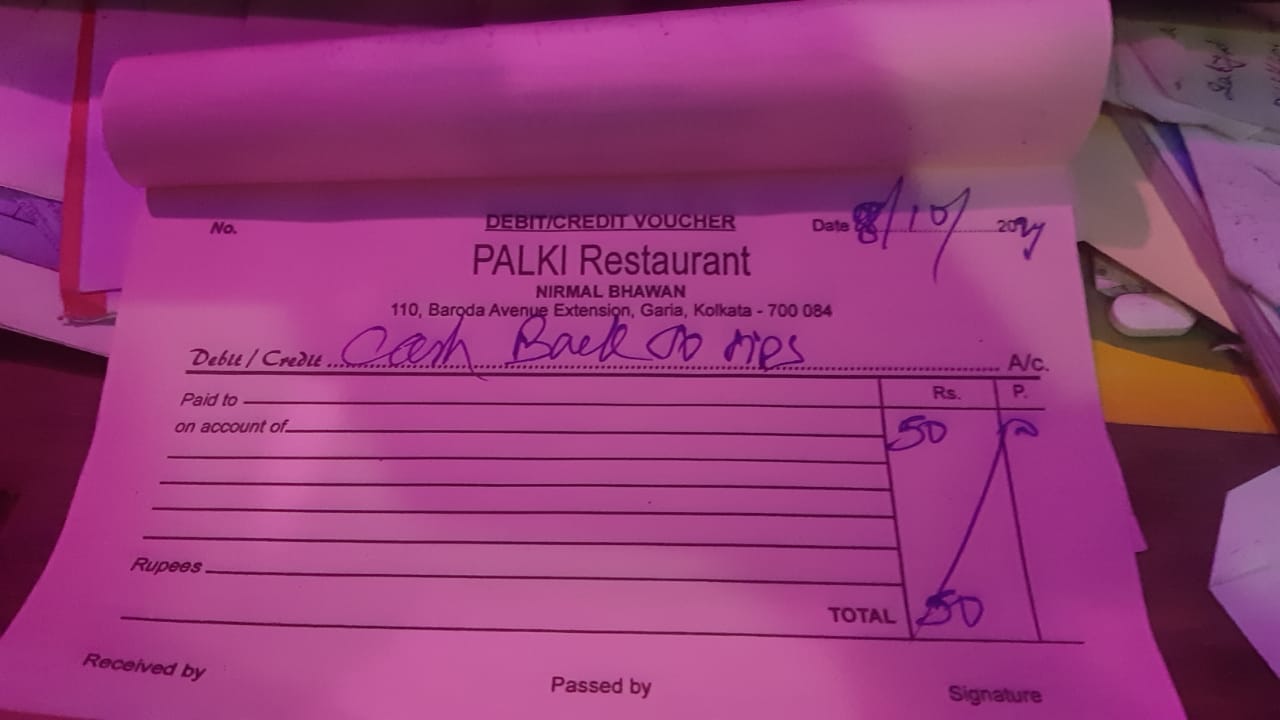 DEBIT/CREDIT VOUCHER
No.
Date 8/10/ 2024
PALKI Restaurant
NIRMAL BHAWAN
110, Baroda Avenue Extension, Garia, Kolkata - 700 084
Debit / Credit Cash Back To Tips A/c.
Rs. P.
Paid to
on account of 50
Rupees
TOTAL 50
Received by Passed by Signature